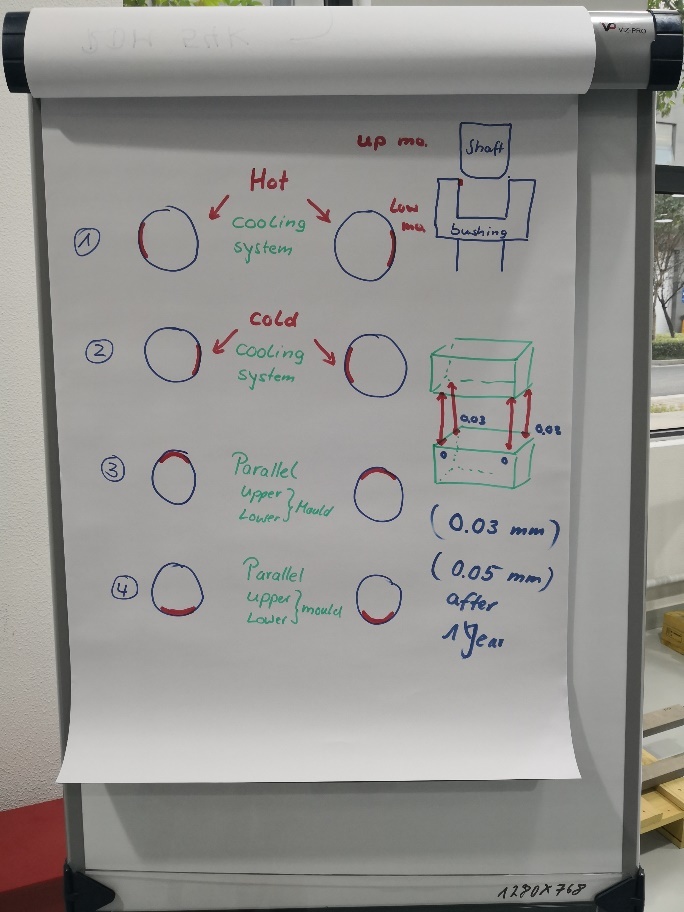 VIZ-PRO
up mo.
Shaft
Hot
Low
mu
1
cooling
system
bushing
cold
2
cooling
system
0.03
0.03
0
0
3
Parallel
upper
Lower
Mould
(0.03 mm)
4
Parallel
upper
Lower
mould
(0.05 mm)
after
1 Year
1280X768